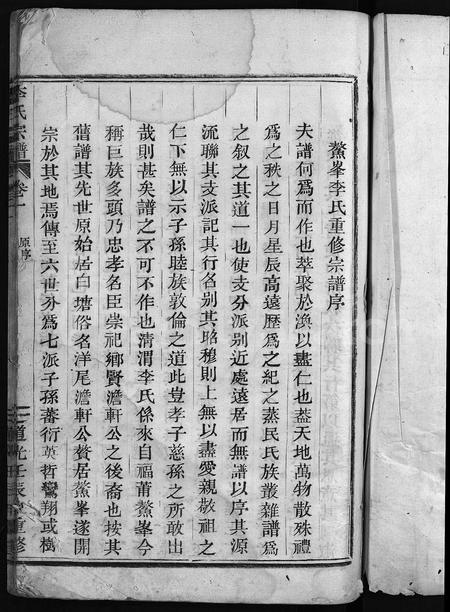 鰲峯李氏重修宗譜序
夫譜何爲而作也萃聚於渙以盡仁也蓋天地萬物散殊禮
爲之秩之日月星辰高遠歷爲之紀之蒸民氏族叢雜譜爲
之叙之其道一也使支分派別近處遠居而無譜以序其源
流聯其支派記其行名別其昭穆則上無以盡愛親敬祖之
仁下無以示子孫睦族敦倫之道此豈孝子慈孫之所敢出
哉則甚矣譜之不可不作也清渭李氏係來自福莆鰲峯今
稱巨族多頭乃忠孝名臣崇祀鄉賢澹軒公之後裔也按其
舊譜其先世原始居白塘俗名洋尾澹軒公贅居鰲峯遂開
宗於其地焉傳至六世分爲七派子孫蕃衍英哲鸞翔或樹
李氏宗譜 卷一 原序 道光壬辰 重修